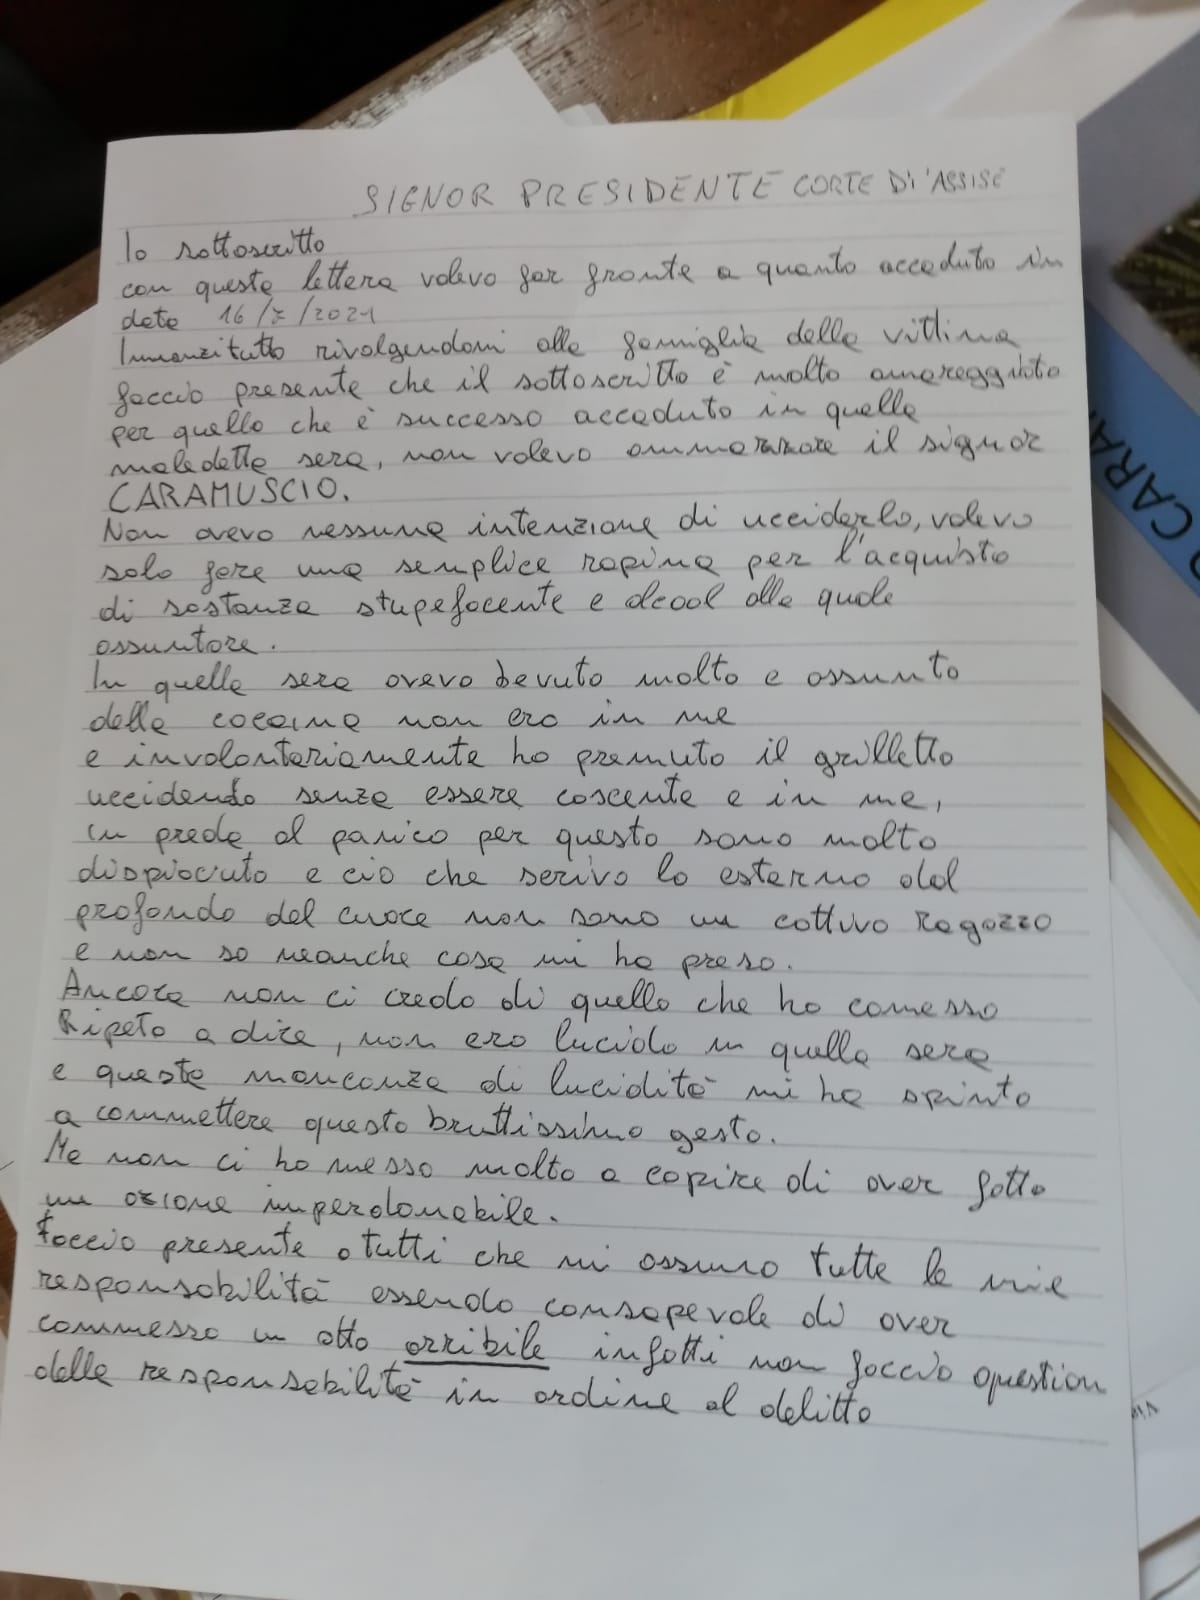 SIGNOR PRESIDENTE CORTE DI'ASSISE
Io sottoscritto
con queste lettera volevo far fronte a quanto accaduto in
data 16/7/2021
Innanzitutto rivolgendomi alla famiglia della vittima
faccio presente che il sottoscritto è molto amareggiato
per quello che è successo accaduto in quella
maledetta sera, non volevo ammazzare il signor
CARAMUSCIO.
Non avevo nessuna intenzione di ucciderlo, volevo
solo fare una semplice rapina per l'acquisto
di sostanza stupefacente e alcool alla quale
assuntore.
In quella sera avevo bevuto molto e assunto
della cocaina non ero in me
e involontariamente ho premuto il grilletto
uccidendo senza essere coscente e in me,
in preda al panico per questo sono molto
dispiaciuto e ciò che scrivo lo esterno dal
profondo del cuore non sono un cattivo ragazzo
e non so neanche cosa mi ha preso.
Ancora non ci credo di quello che ho comesso
Ripeto a dire, non ero lucido in quella sera
e questa mancanza di lucidità mi ha spinto
a commettere questo bruttissimo gesto.
Me non ci ho messo molto a capire di aver fatto
un azione imperdonabile.
Faccio presente a tutti che mi assumo tutte le mie
responsabilità essendo consapevole di aver
commesso un atto orribile infatti non faccio question
della responsabilità in ordine al delitto
CARA